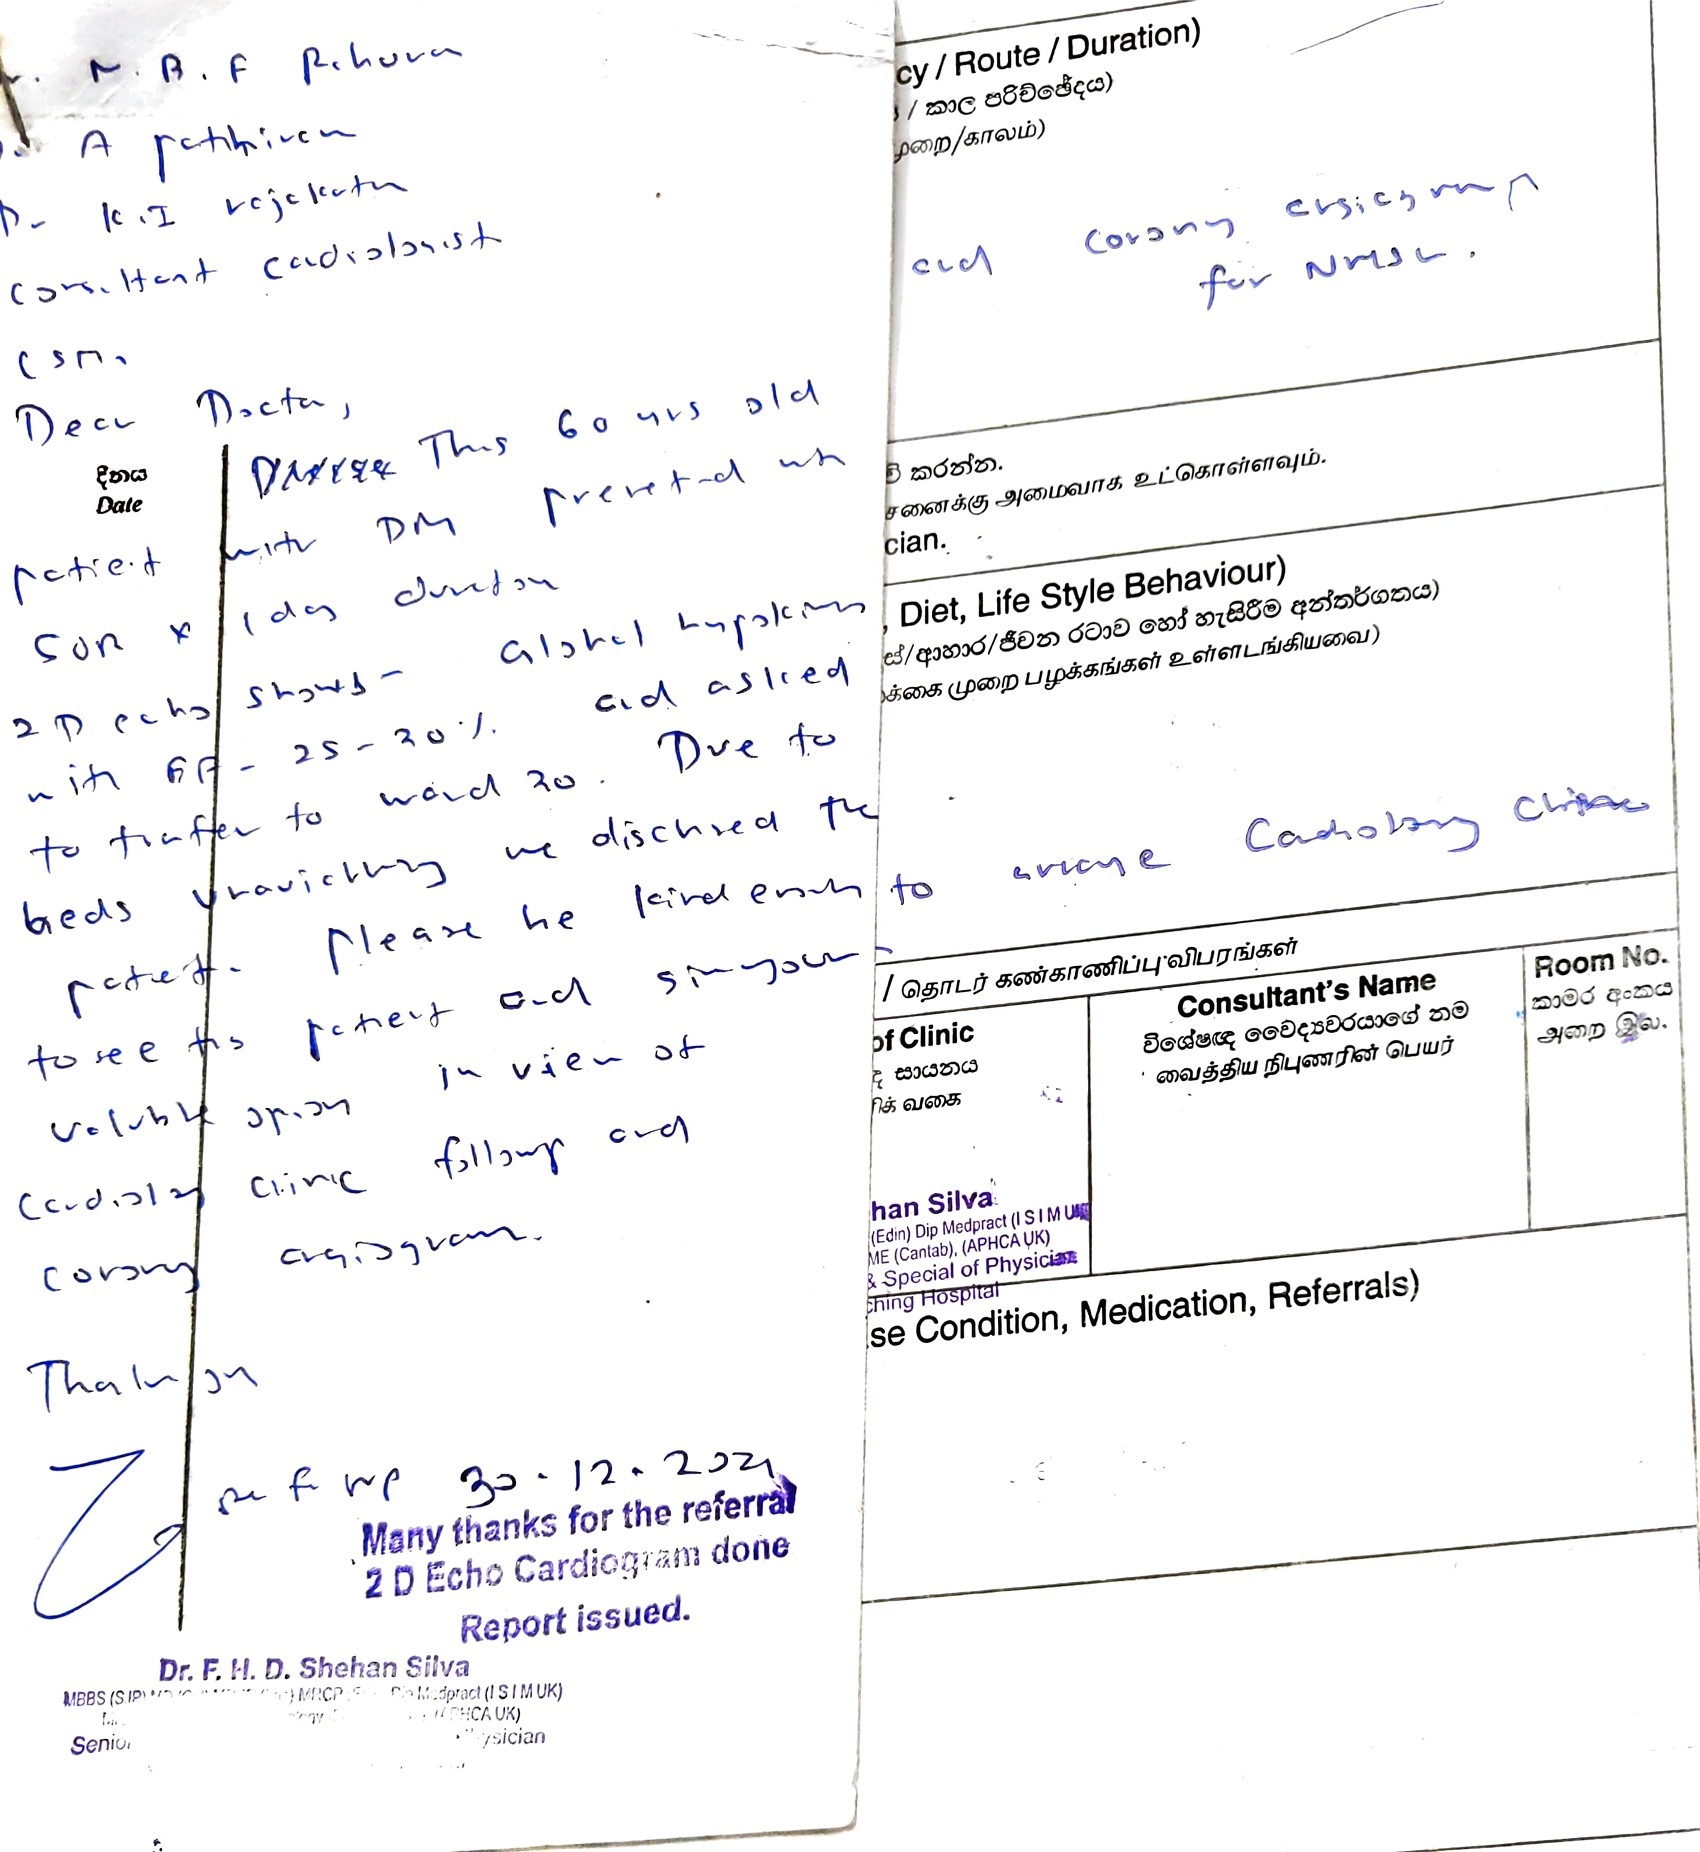 N. B. F
A
Dr K.I
Consultant Cardiologist
Dear Doctor,
දිනය
Date
This 60 yrs old
patient with DM presented with
SOB x 1 day duration
2D echo shows - Global hypokinesia
with EF - 25-30% and asked
to transfer to ward 20. Due to
beds we discharged the
patient. Please be kind enough to arrange Cardiology Clinic
to see this patient and give your
valuable opinion in view of
Cardiology Clinic followup and
coronary angiogram.
Thank you
30.12.2021
Many thanks for the referral
2 D Echo Cardiogram done
Report issued.
Dr. F. H. D. Shehan Silva
MBBS MRCP Medpract (I S I M UK)
cy / Route / Duration)
/ කාල පරිච්ඡේදය)
முறை/காலம்)
and coronary angiogram
for
කරන්න.
அமைவாக உட்கொள்ளவும்.
cian.
, Diet, Life Style Behaviour)
ස්/ආහාර/ජීවන රටාව හෝ හැසිරීම අන්තර්ගතය)
க்கை முறை பழக்கங்கள் உள்ளடங்கியவை)
/ தொடர் கண்காணிப்பு விபரங்கள்
of Clinic
සායනය
வகை
Consultant's Name
විශේෂඥ වෛද්‍යවරයාගේ නම
வைத்திய நிபுணரின் பெயர்
Room No.
කාමර අංකය
அறை இல.
han Silva
(Edin) Dip Medpract (I S I M UK
ME (Cantab), (APHCA UK)
& Special of Physician
ching Hospital
se Condition, Medication, Referrals)